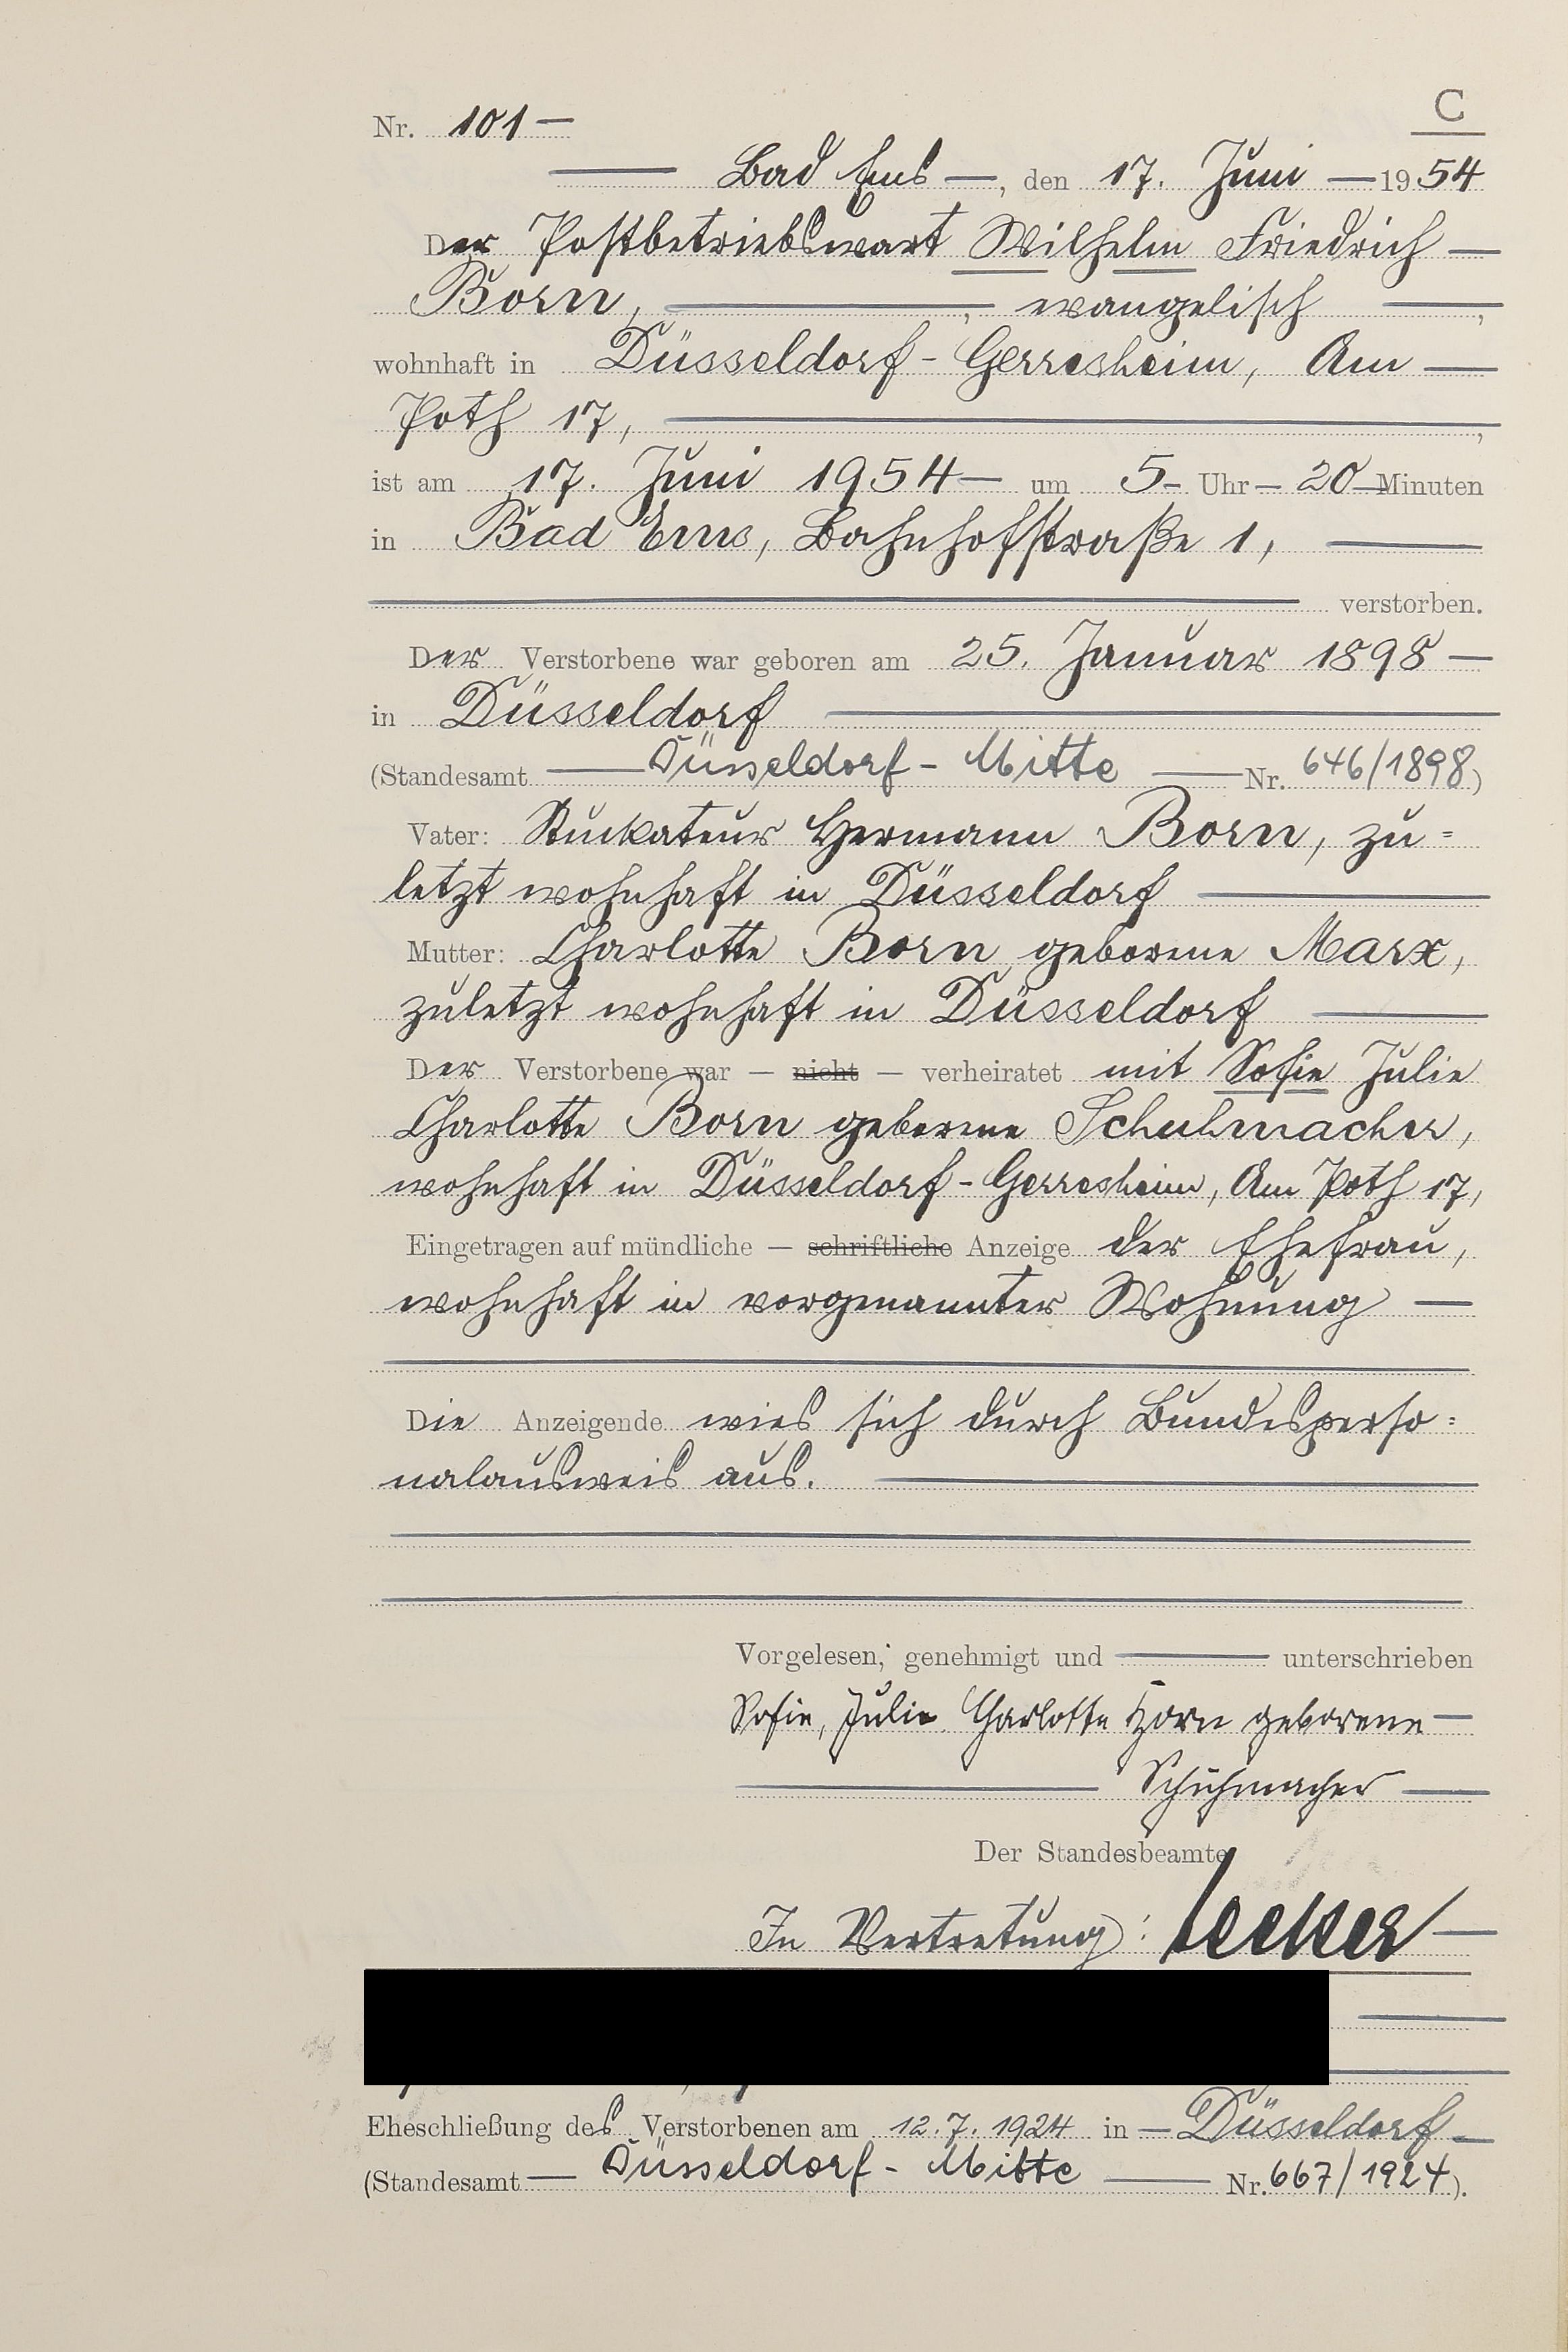 C
Nr. 101 —
— Bad Ems —, den 17. Juni — 1954
Der Postbetriebswart Wilhelm Friedrich —
Born, —, evangelisch —,
wohnhaft in Düsseldorf-Gerresheim, Am —
Poth 17, —,
ist am 17. Juni 1954 — um 5 - Uhr — 20 — Minuten
in Bad Ems, Bahnhofstraße 1, —
— verstorben.
Der Verstorbene war geboren am 25. Januar 1898 —
in Düsseldorf —
(Standesamt — Düsseldorf-Mitte — Nr. 646/1898)
Vater: Stuckateur Hermann Born, zu=
letzt wohnhaft in Düsseldorf —
Mutter: Charlotte Born geborene Marx,
zuletzt wohnhaft in Düsseldorf —
Der Verstorbene war — nicht — verheiratet mit Sofie Julie
Charlotte Born geborene Schuhmacher,
wohnhaft in Düsseldorf-Gerresheim, Am Poth 17,
Eingetragen auf mündliche — schriftliche Anzeige der Ehefrau,
wohnhaft in vorgenannter Wohnung —
Die Anzeigende wies sich durch Bundesperso=
nalausweis aus. —
Vorgelesen, genehmigt und — unterschrieben
Sofie, Julie Charlotte Born geborene —
— Schuhmacher —
Der Standesbeamte
In Vertretung: —
Eheschließung des Verstorbenen am 12.7.1924 in — Düsseldorf —
(Standesamt — Düsseldorf-Mitte — Nr. 667/1924).